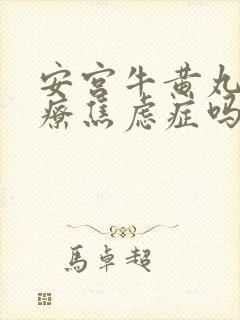 安宫牛黄丸
疗焦虑症吗
马卓超